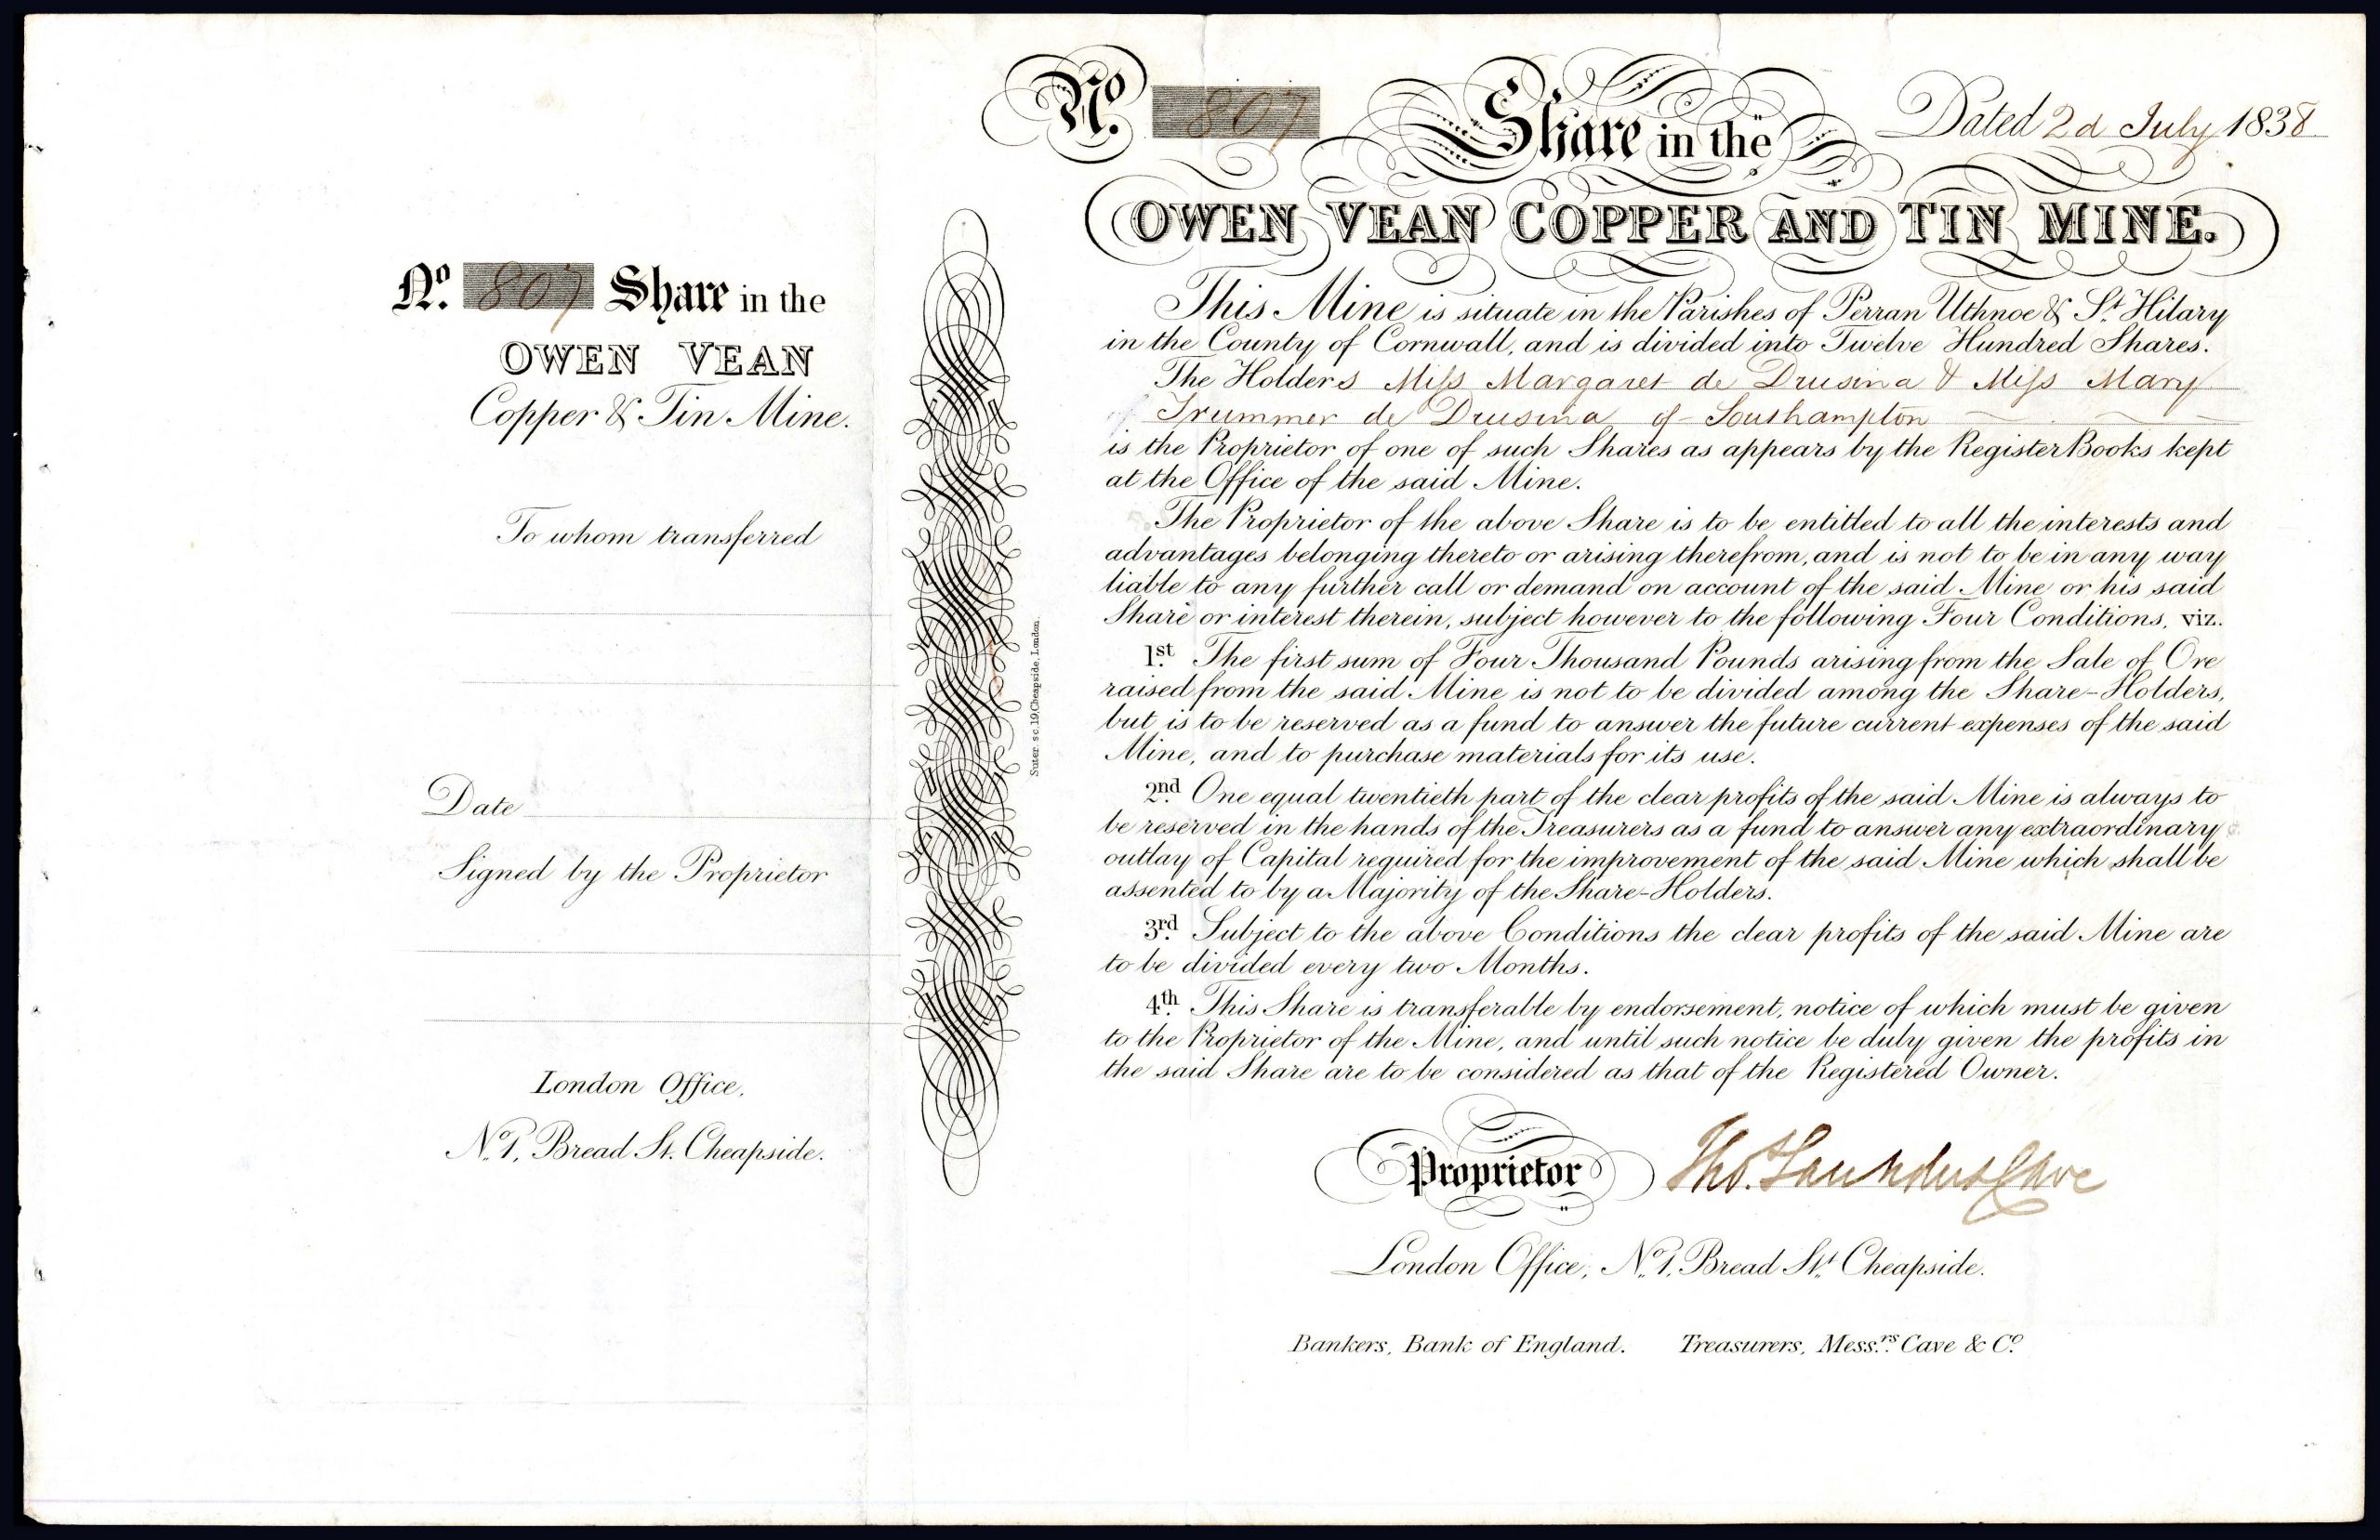 No. 807 Share in the
OWEN VEAN
Copper & Tin Mine.
To whom transferred
Date
Signed by the Proprietor
London Office,
No. 1, Bread St. Cheapside.
Suter sc. 19, Cheapside, London.
No. 807 Share in the Dated 2d July 1838
OWEN VEAN COPPER AND TIN MINE.
This Mine is situate in the Parishes of Perran Uthnoe & St. Hilary
in the County of Cornwall, and is divided into Twelve Hundred Shares.
The Holders Miss Margaret de Drusina & Miss Mary
of Trummer de Drusina of Southampton
is the Proprietor of one of such Shares as appears by the Register Books kept
at the Office of the said Mine.
The Proprietor of the above Share is to be entitled to all the interests and
advantages belonging thereto or arising therefrom, and is not to be in any way
liable to any further call or demand on account of the said Mine or his said
Share or interest therein, subject however to the following Four Conditions, viz.
1st. The first sum of Four Thousand Pounds arising from the Sale of Ore
raised from the said Mine is not to be divided among the Share-Holders,
but is to be reserved as a fund to answer the future current expenses of the said
Mine, and to purchase materials for its use.
2nd. One equal twentieth part of the clear profits of the said Mine is always to
be reserved in the hands of the Treasurers as a fund to answer any extraordinary
outlay of Capital required for the improvement of the said Mine which shall be
assented to by a Majority of the Share-Holders.
3rd. Subject to the above Conditions the clear profits of the said Mine are
to be divided every two Months.
4th. This Share is transferable by endorsement, notice of which must be given
to the Proprietor of the Mine, and until such notice be duly given the profits in
the said Share are to be considered as that of the Registered Owner.
Proprietor Thos. Saunders Cave
London Office, No. 1, Bread St. Cheapside.
Bankers, Bank of England. Treasurers, Messrs. Cave & Co.